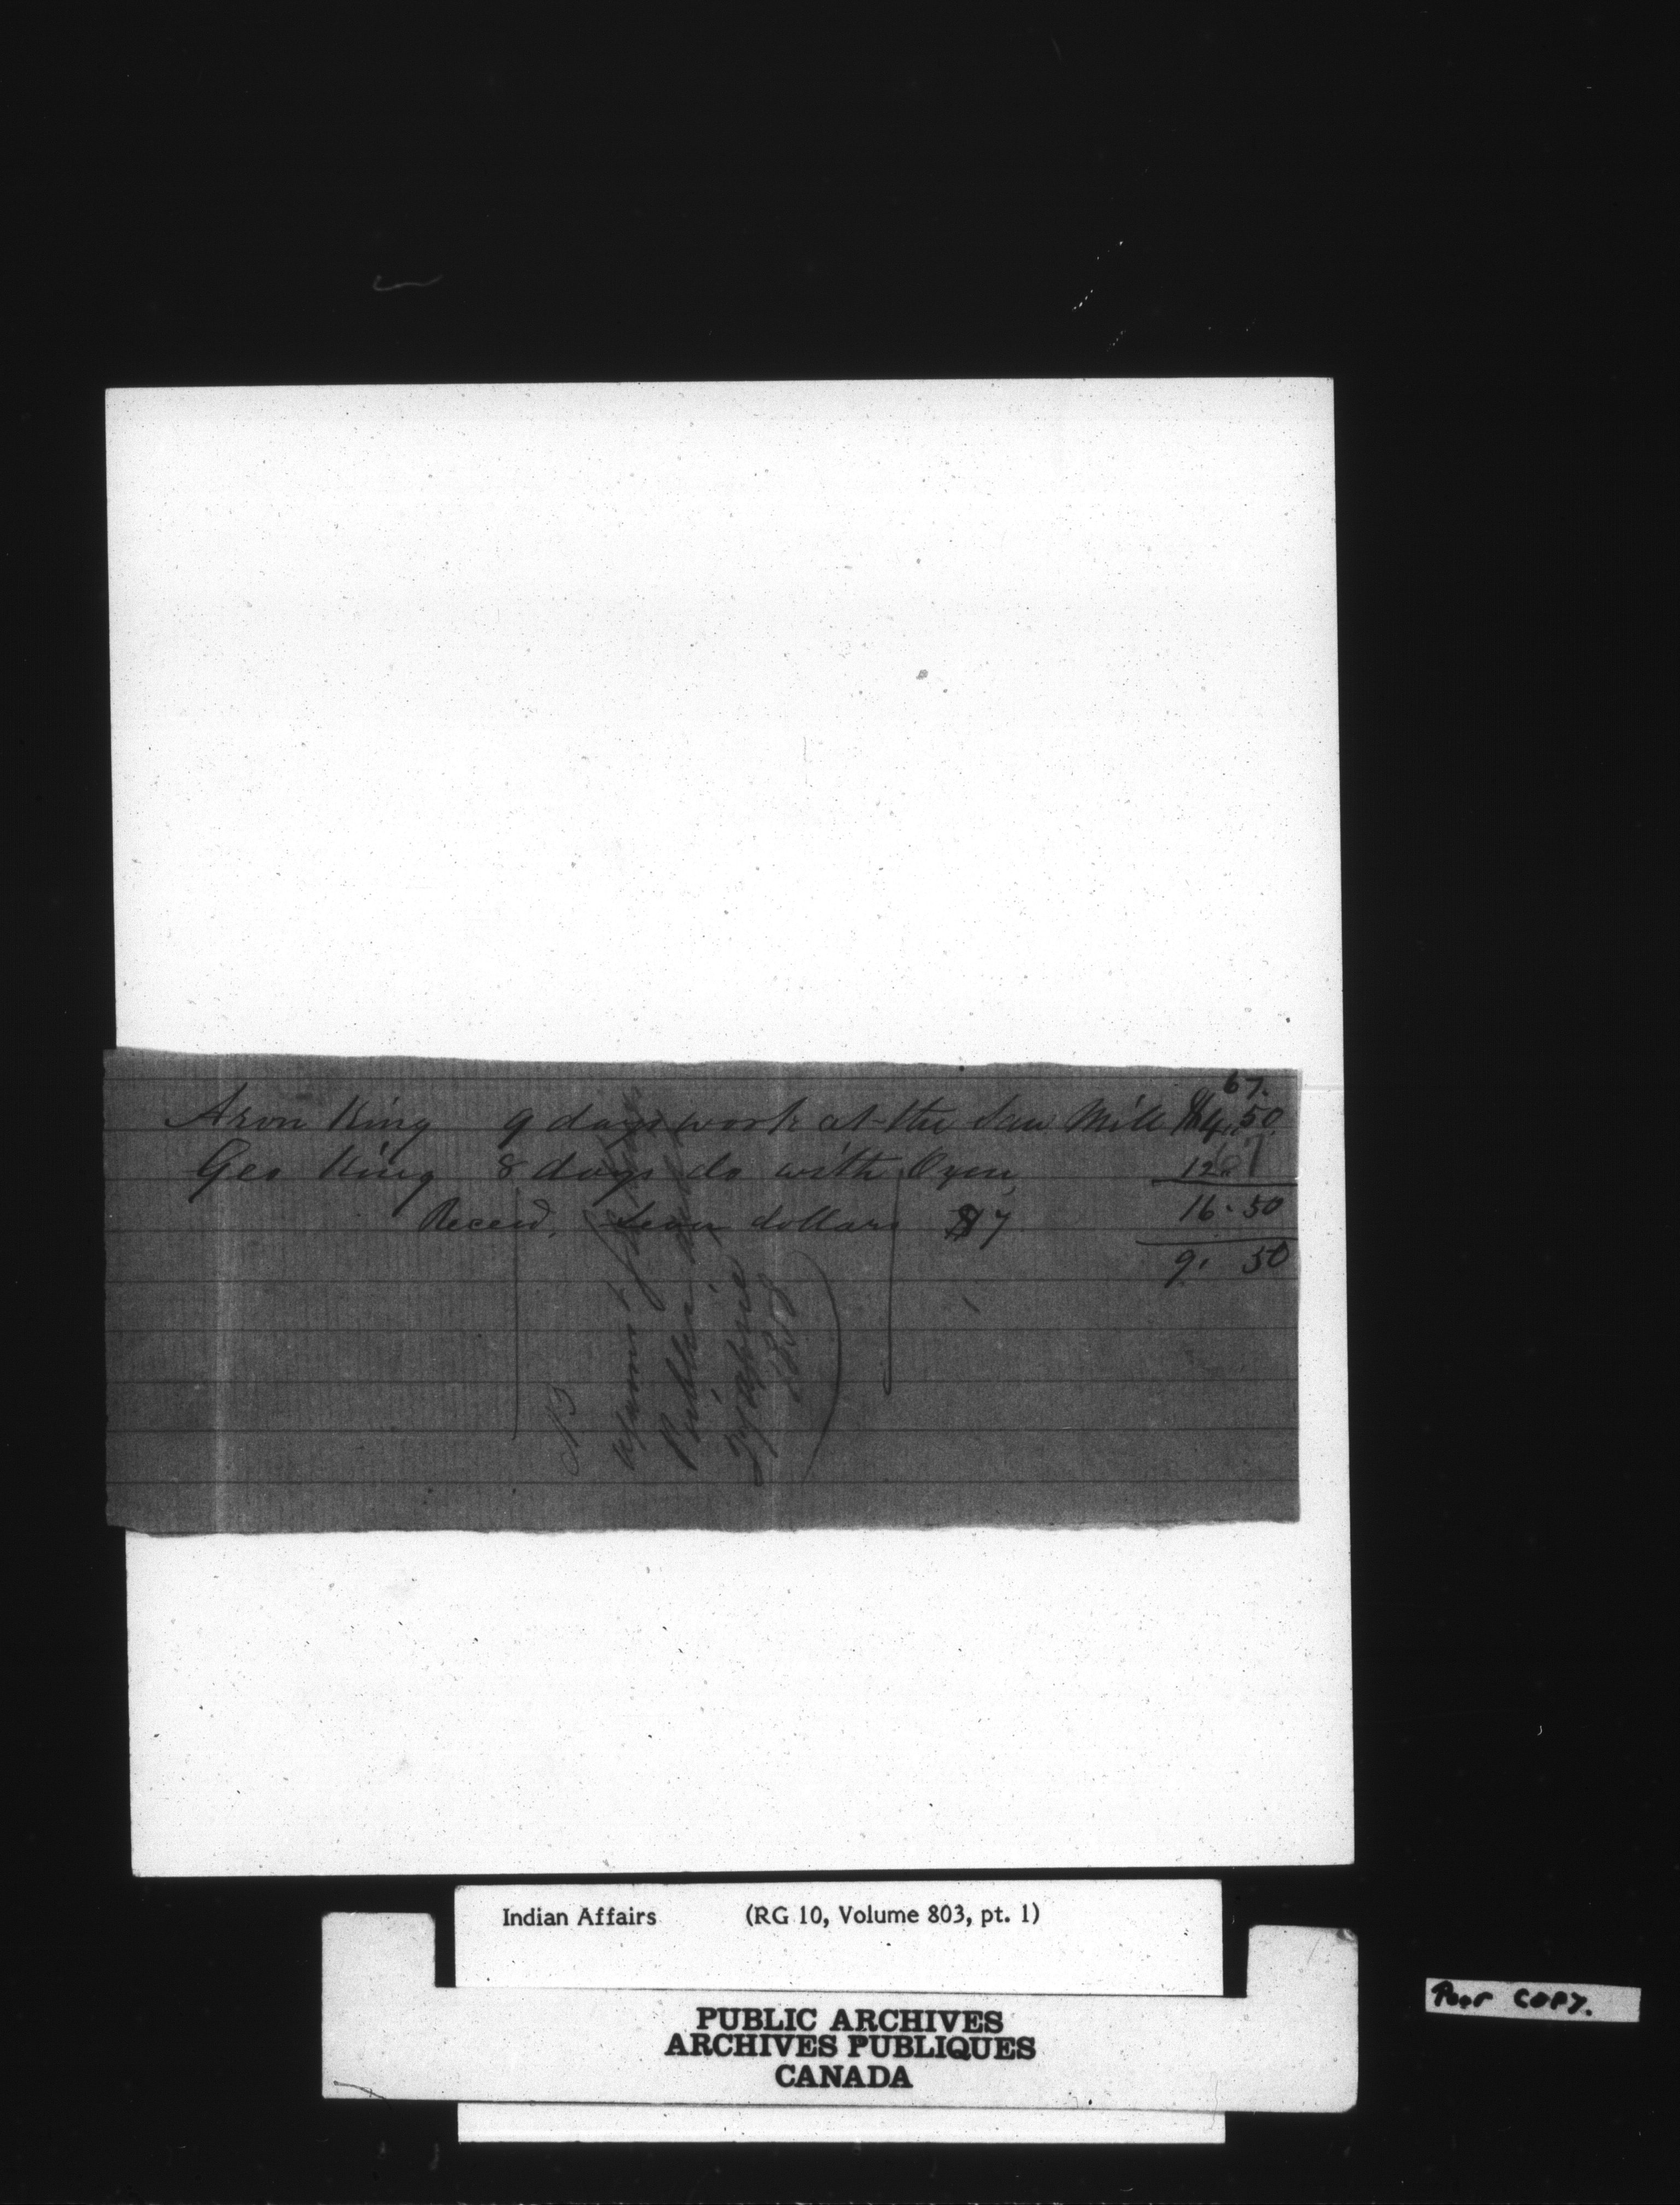 67.
Aron King 9 days work at the Saw Mill $4.50
Geo King 8 days do with Oxen 12"
67
16.50
Receivd. Seven dollars $7
9. 50
1858
Indian Affairs (RG 10, Volume 803, pt. 1)
PUBLIC ARCHIVES
ARCHIVES PUBLIQUES
CANADA
Poor COPY.